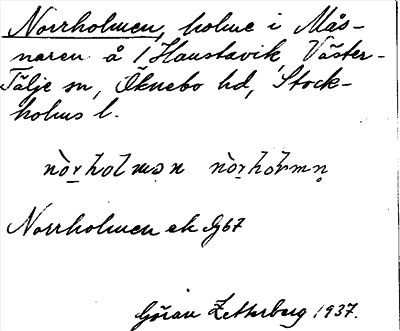 Norrholmen, holme i Mås-
naren å 1 Haustavik, Väster-
Tälje sn, Öknebo hd, Stock-
holms l.
nòrholmən nòrhoƚmn̥
Norrholmen ek Gb7
Göran Zetterberg 1937.